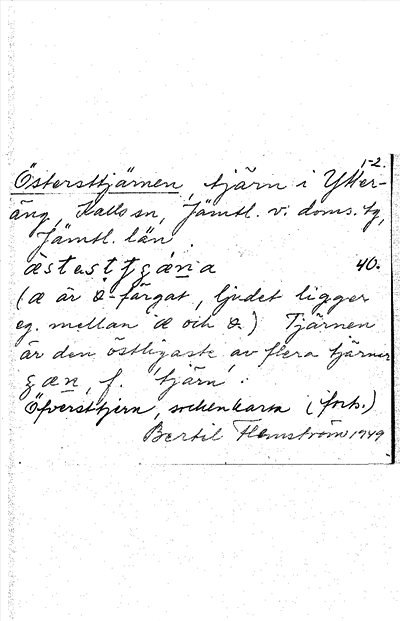 1-2.
Östersttjärnen, tjärn i Ytter-
äng, Kalls sn, Jämtl. v. doms. tg,
Jämtl. län.
40.
(æ är -färgat, ljudet ligger
eg. mellan æ och .) Tjärnen
är den östligaste av flera tjärnar
f. 'tjärn'.
Öfversttjern, sockenkarta (fork.)
Bertil Flemström 1949